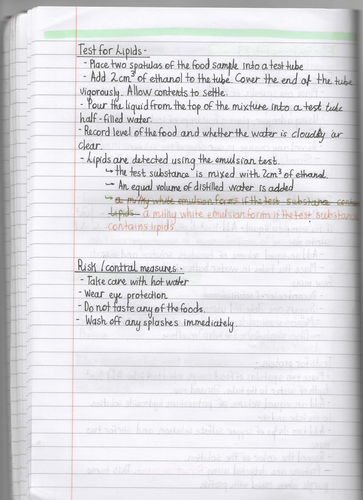 Test for Lipids:-
- Place two spatulas of the food sample into a test tube
- Add 2cm³ of ethanol to the tube. Cover the end of the tube
vigorously. Allow contents to settle.
- Pour the liquid from the top of the mixture into a test tube
half-filled water.
- Record level of the food and whether the water is cloudy or
clear.
- Lipids are detected using the emulsion test.
↳ the test substance is mixed with 2cm³ of ethanol.
↳ An equal volume of distilled water is added
↳ a milky white emulsion forms if the test substance
lipids - a milky white emulsion forms if the test substance
contains lipids
Risk / control measures:-
- Take care with hot water
- Wear eye protection
- Do not taste any of the foods.
- Wash off any splashes immediately.